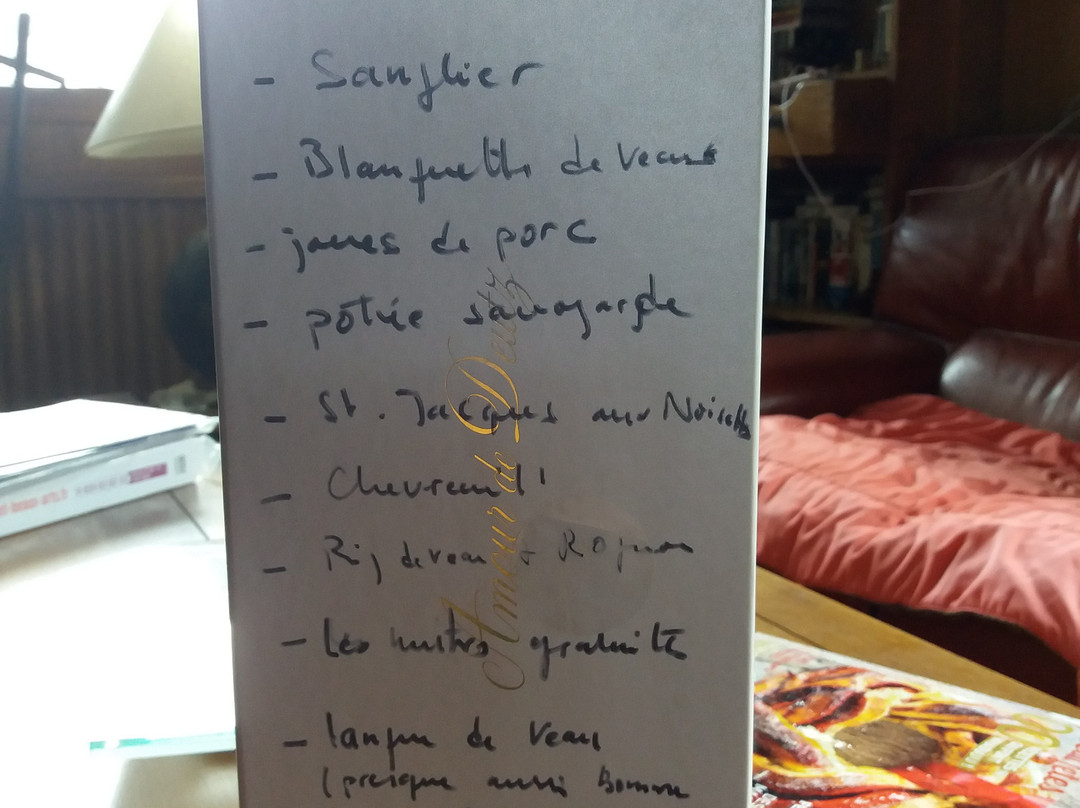 - Sanglier
- Blanquette de veau
- joues de porc
- potée savoyarde
- St. Jacques aux Noisettes
- Chevreuil
- Ris de veau + Rognon
- les huitres gratinées
- langue de veau
(presque aussi Bonne
Amour de Deutz